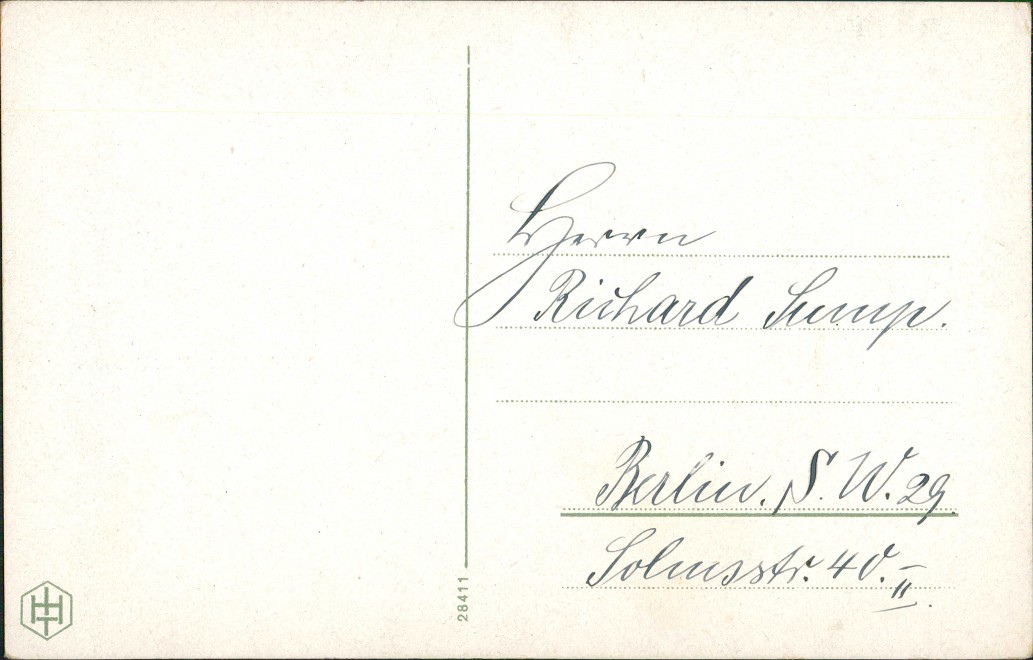 Herrn
Richard Sump.
Berlin. S. W. 29.
Solmsstr. 40. II.
28411
HT